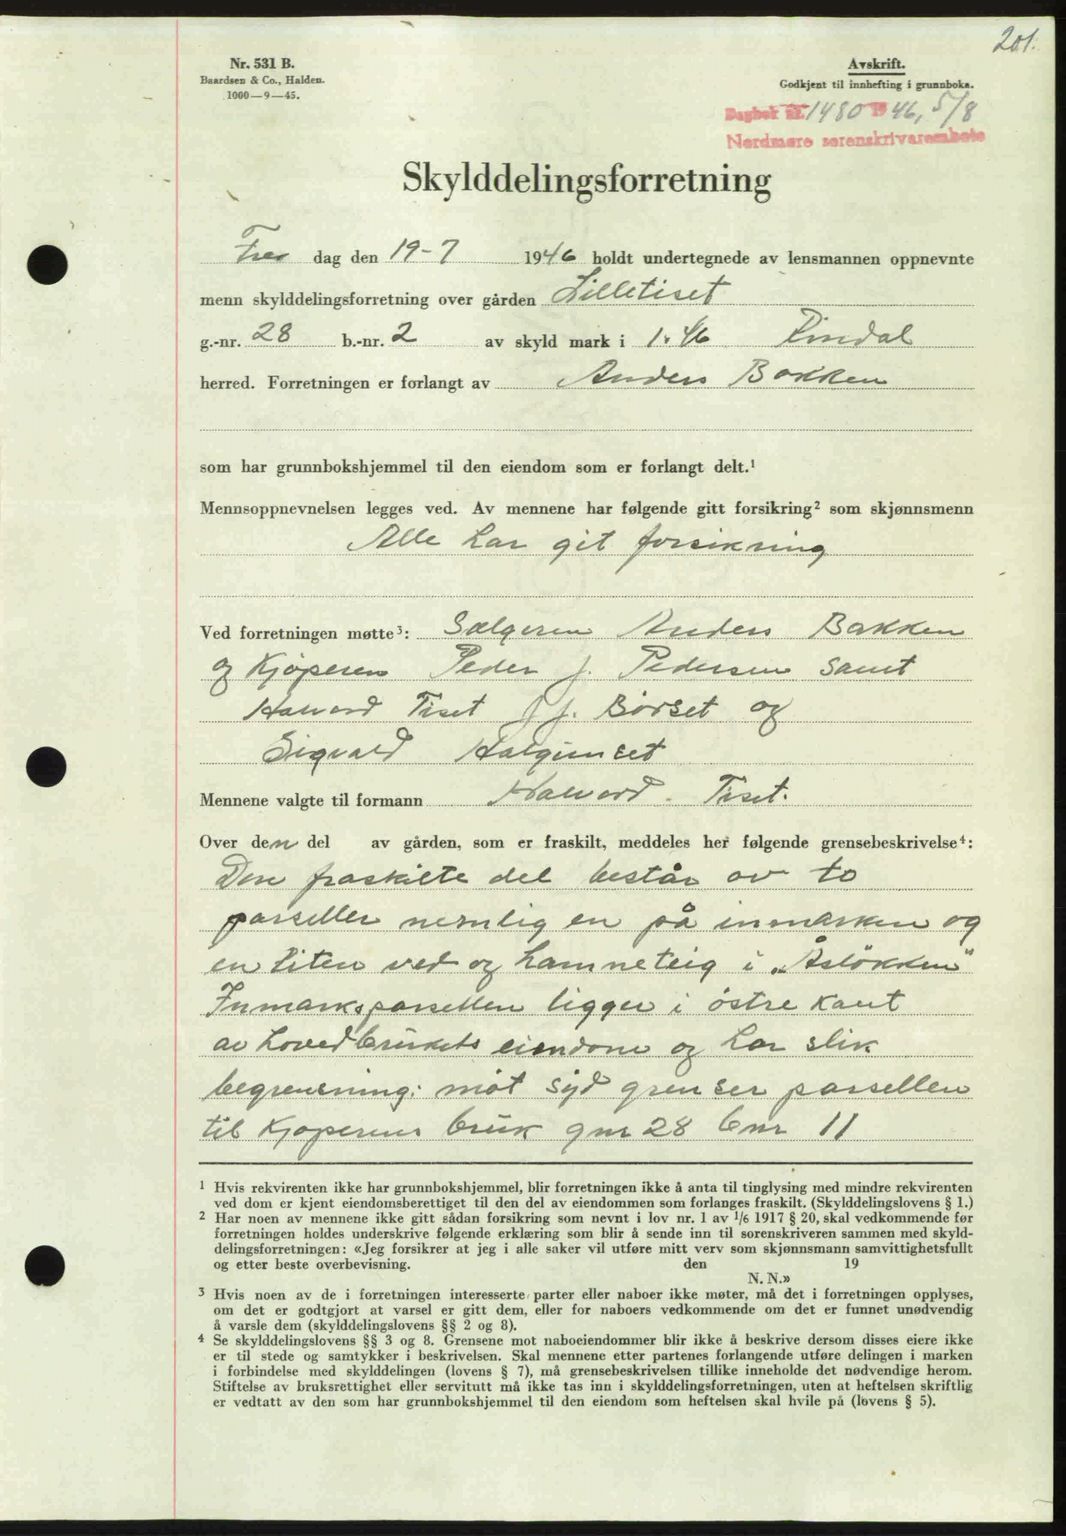 201.
Nr. 531 B.
Baardsen & Co., Halden.
1000—9—45.
Avskrift.
Godkjent til innhefting i grunnboka.
Dagbok nr. 1480 1946, 5/8
Nordmøre sorenskrivarembete
Skylddelingsforretning
Fre dag den 19-7 1946 holdt undertegnede av lensmannen oppnevnte
menn skylddelingsforretning over gården Lilletiset
g.-nr. 28 b.-nr. 2 av skyld mark i 1.46 Rindal
herred. Forretningen er forlangt av Anders Bakken
som har grunnbokshjemmel til den eiendom som er forlangt delt.¹
Mennsoppnevnelsen legges ved. Av mennene har følgende gitt forsikring² som skjønnsmenn
Alle har git forsikning
Ved forretningen møtte³: Sælgeren Anders Bakken
og Kjøperen Peder J. Pedersen samt
Halvard Tiset J. J. Börset og
Sigvald Halgunset
Mennene valgte til formann Halvard Tiset.
Over den del av gården, som er fraskilt, meddeles her følgende grensebeskrivelse⁴:
Den fraskilte del består av to
parseller nemlig en på inmarken og
en liten ved og hamneteig i „Åslökken"
Inmarksparsellen ligger i östre kant
av hovedbrukets eiendom og har slik
begrensning: möt syd grenser parsellen
til Kjøperens bruk gnr 28 bnr 11
¹ Hvis rekvirenten ikke har grunnbokshjemmel, blir forretningen ikke å anta til tinglysing med mindre rekvirenten
ved dom er kjent eiendomsberettiget til den del av eiendommen som forlanges fraskilt. (Skylddelingslovens § 1.)
² Har noen av mennene ikke gitt sådan forsikring som nevnt i lov nr. 1 av 1/6 1917 § 20, skal vedkommende før
forretningen holdes underskrive følgende erklæring som blir å sende inn til sorenskriveren sammen med skyld-
delingsforretningen: «Jeg forsikrer at jeg i alle saker vil utføre mitt verv som skjønnsmann samvittighetsfullt
og etter beste overbevisning. den 19
N. N.»
³ Hvis noen av de i forretningen interesserte parter eller naboer ikke møter, må det i forretningen opplyses,
om det er godtgjort at varsel er gitt dem, eller for naboers vedkommende om det er funnet unødvendig
å varsle dem (skylddelingslovens §§ 2 og 8).
⁴ Se skylddelingslovens §§ 3 og 8. Grensene mot naboeiendommer blir ikke å beskrive dersom disses eiere ikke
er til stede og samtykker i beskrivelsen. Skal mennene etter partenes forlangende utføre delingen i marken
i forbindelse med skylddelingen (lovens § 7), må grensebeskrivelsen tillike inneholde det nødvendige herom.
Stiftelse av bruksrettighet eller servitutt må ikke tas inn i skylddelingsforretningen, uten at heftelsen skriftlig
er vedtatt av den som har grunnbokshjemmel til den eiendom som heftelsen skal hvile på (lovens § 5).